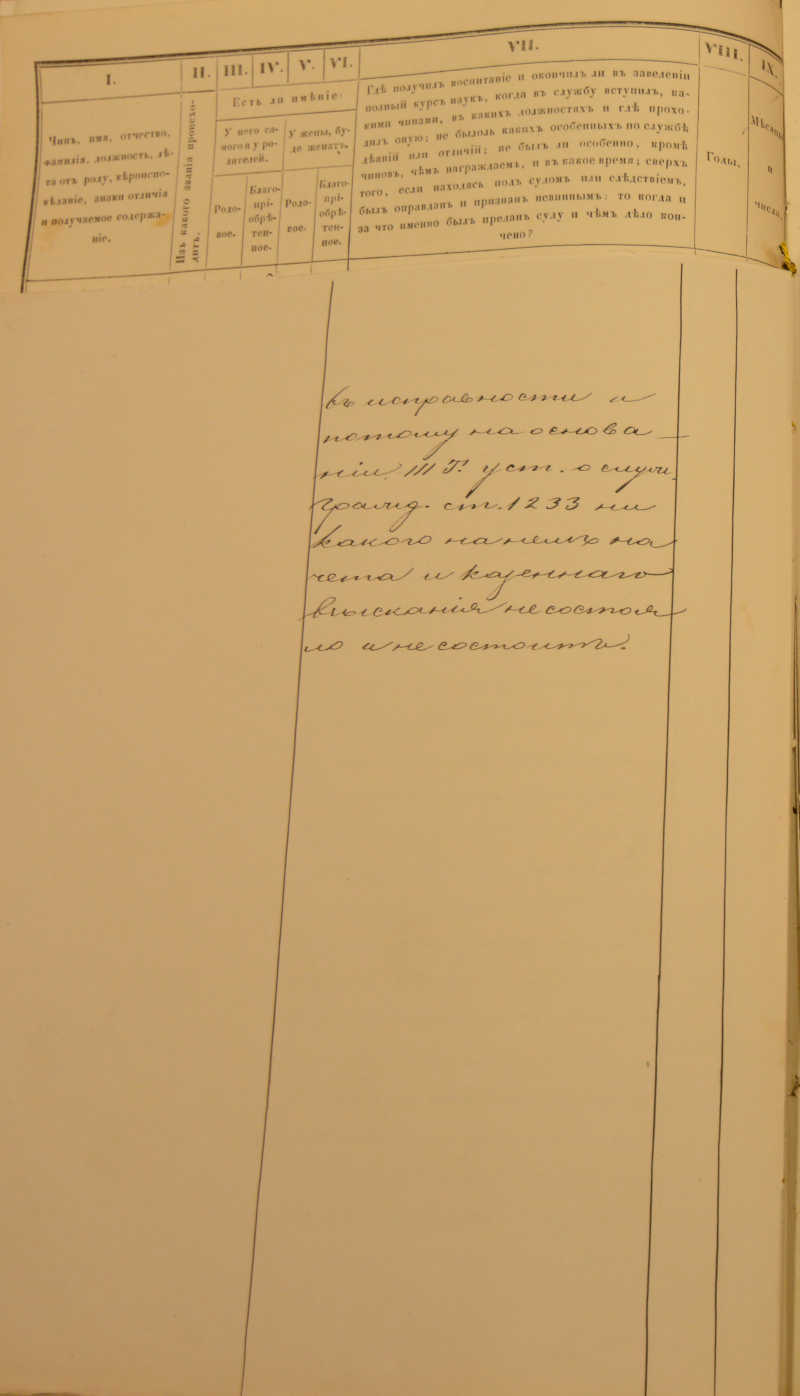 I.
II.
III.
IV.
V.
VI.
VII.
VIII.
IX.
Чинъ, имя, отчество,
фамилія, должность, лѣ-
та отъ роду, вѣроиспо-
вѣданіе, знаки отличія
и получаемое содержа-
ніе.
Изъ какого званія происхо-
дитъ.
Есть ли имѣніе:
У него са-
мого и у ро-
дителей.
У жены, бу-
де женатъ.
Родо-
вое.
Благо-
прі-
обрѣ-
тен-
ное.
Родо-
вое.
Благо-
прі-
обрѣ-
тен-
ное.
Гдѣ получилъ воспитаніе и окончилъ ли въ заведеніи
полный курсъ наукъ, когда въ службу вступилъ, ка-
кими чинами, въ какихъ должностяхъ и гдѣ прохо-
дилъ оную; не былоль какихъ особенныхъ по службѣ
дѣяній или отличій; не былъ ли особенно, кромѣ
чиновъ, чѣмъ награждаемъ, и въ какое время; сверхъ
того, если находясь подъ судомъ или слѣдствіемъ,
былъ оправданъ и признанъ невиннымъ: то когда и
за что именно былъ преданъ суду и чѣмъ дѣло кон-
чено?
Годы.
Мѣсяцы
и
числа.
и
потому на основа
ніи III Т. уст. о служ.
Прав. ст. 1233
на
и
Взысканія не состоял
и не состоитъ.